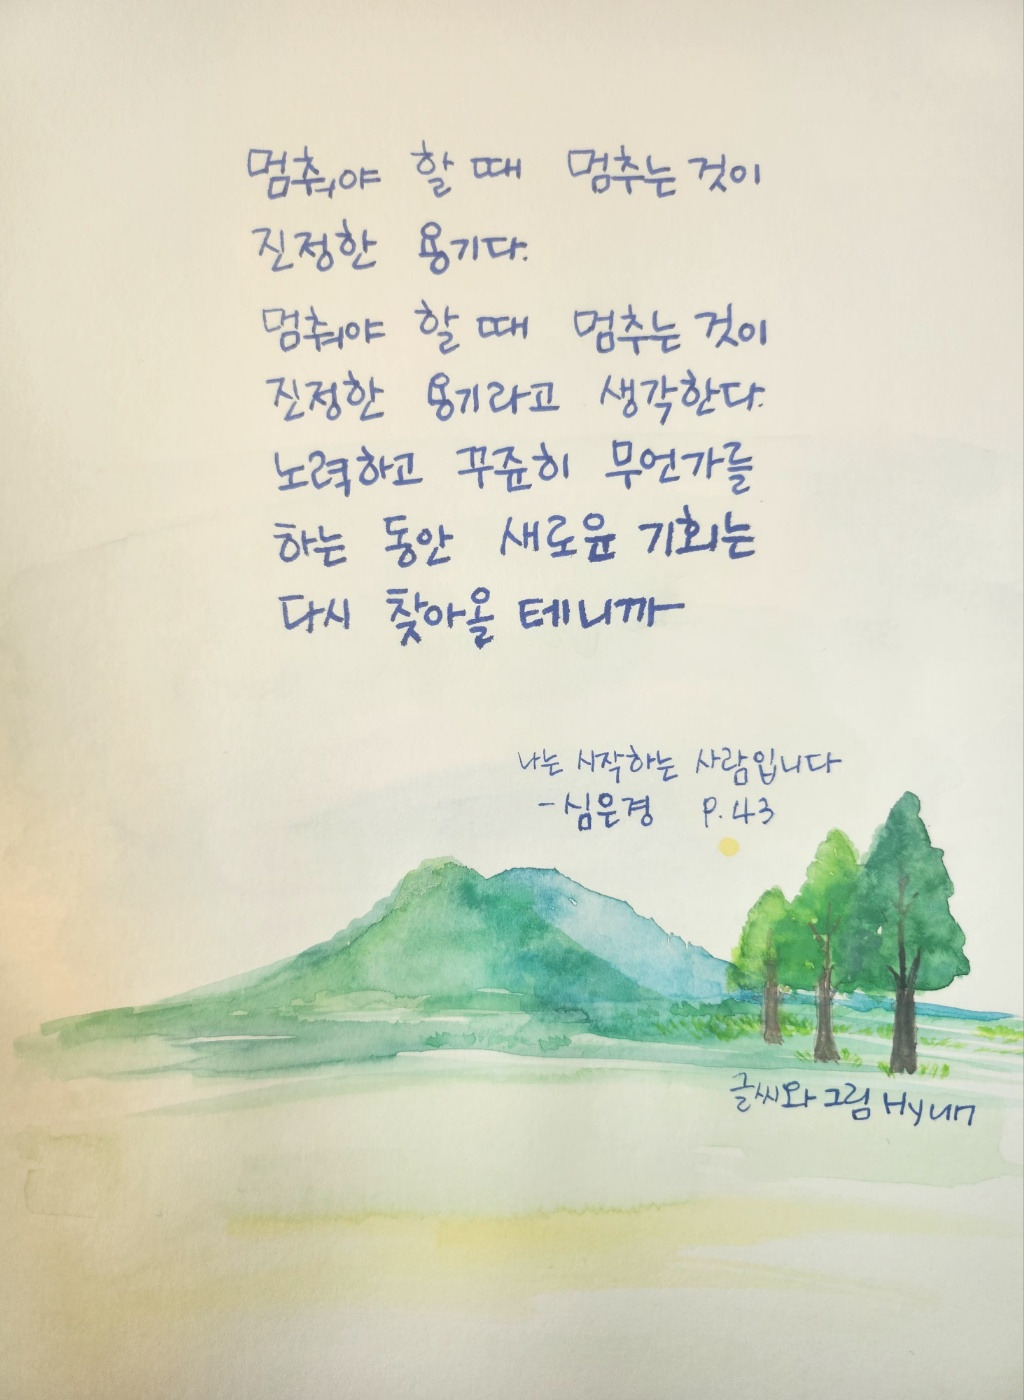 멈춰야 할 때 멈추는 것이
진정한 용기다.
멈춰야 할 때 멈추는 것이
진정한 용기라고 생각한다.
노력하고 꾸준히 무언가를
하는 동안 새로운 기회는
다시 찾아올 테니까
나는 시작하는 사람입니다
- 심은경 P.43
글씨와 그림 Hyun